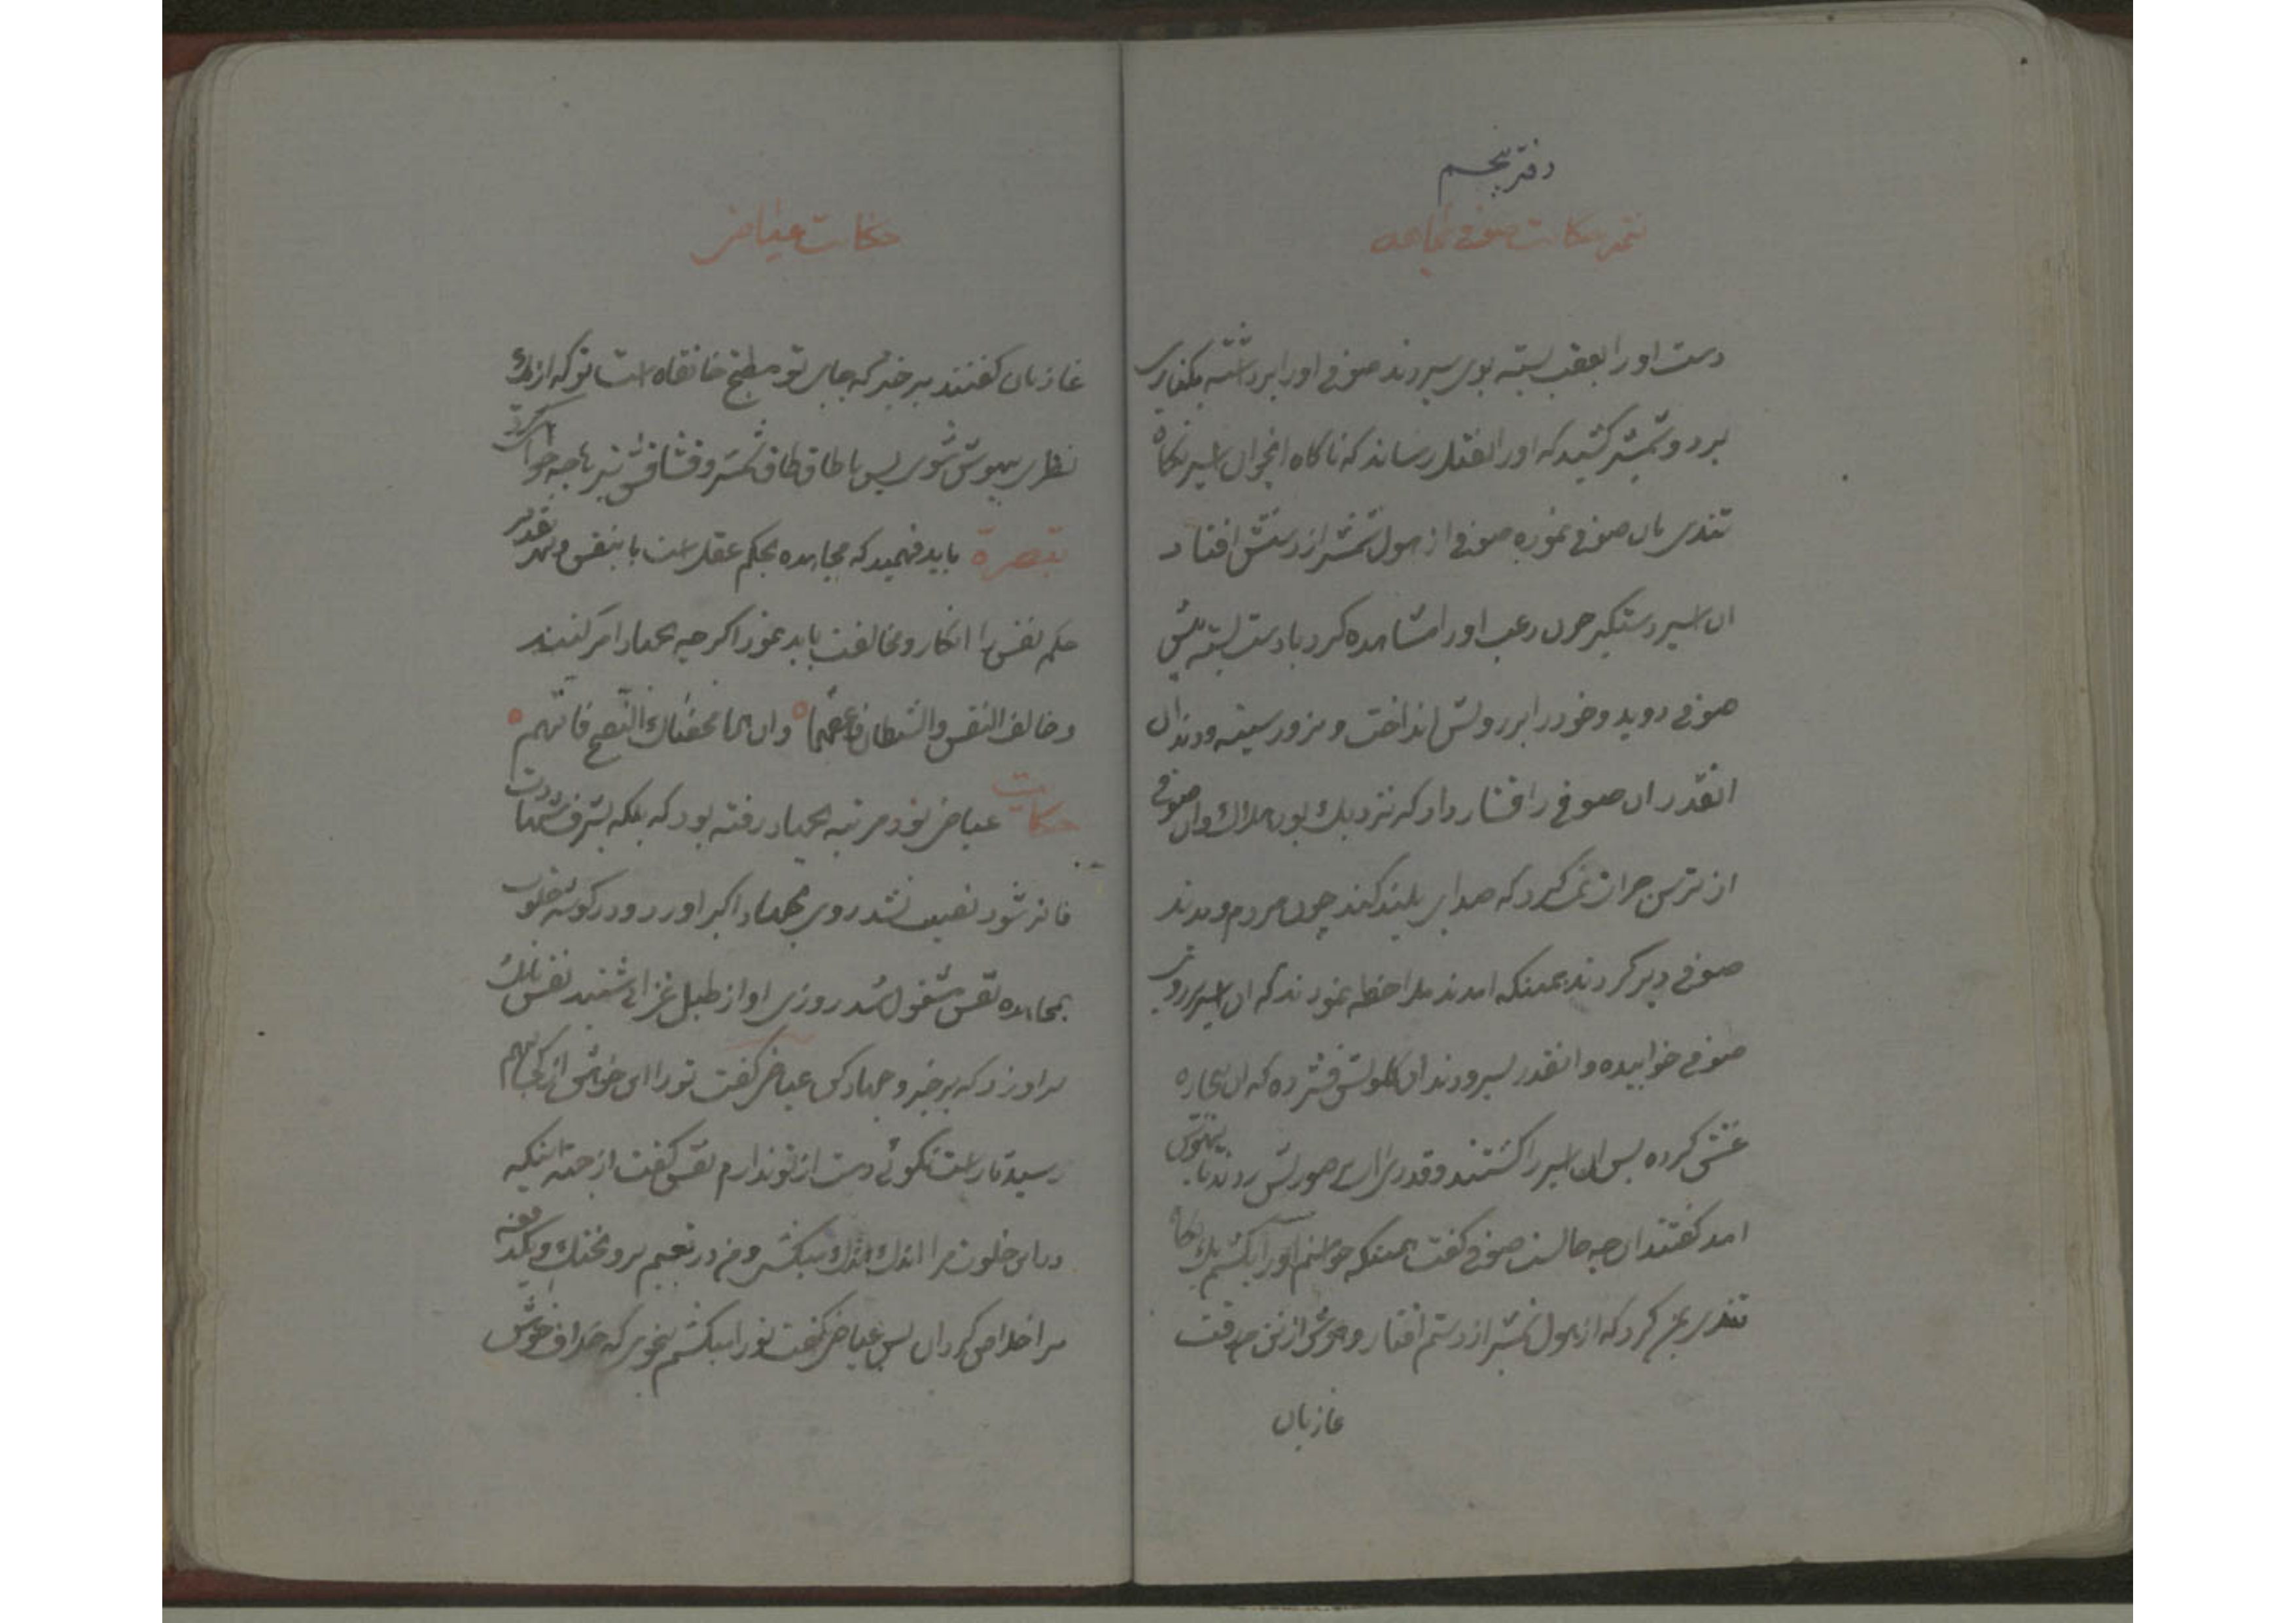 دفتر پنجم
تتمه حکایت صوفی مجاهد
دست او را بعقب بسته بوی سپردند صوفی او را برداشته بکناری
برد و شمشیر کشید که او را بقتل رساند که ناکاه انجوان اسیر نکاه
تندی بان صوفی نموده صوفی از هول شمشیر از دستش افتاد
ان اسیر دستکیر چون رعب او را مشاهده کرد با دست بسته پیش
صوفی دوید و خود را بر رویش انداخت و بزور سینه و دندان
انقدر ان صوفی را فشار داد که نزدیک بود بهلاک وان صوفی
از ترس جرات نمیکرد که صدای بلند کند چون مردم دیدند
صوفی دیر کرد ند همینکه امدند ملاحظه نمودند که ان اسیر بر روی
صوفی خوابیده و انقدر بسر و دندان کلویش فشرده که ان بیچاره
غش کرده پس ان اسیر را کشتند و قدری اب بر صورتش زدند تا بهوش
امد کفتند این چه حالست صوفی کفت همینکه خواستم او را بکشم یک نکاه
تندی بمن کرد که از هول شمشیر از دستم افتاد و هوش از تن من رفت
غازیان
حکایت عیاض
غازیان کفتند برخیز که جای تو مطبخ خانقاه است تو که از یک
نظری بیهوش شوی پس با طاق طاق شمشیر و فشافش تیر چه خواهی کرد
تبصرة باید فهمید که مجاهده بحکم عقل است با نفس و بهر قدر
حکم نفس را انکار و مخالفت باید نمود اکر چه بجهاد امر کنند
و خالف النفس والشیطان فاعصهما وان هما محضاک النصح فاتهم
حکایت عیاض نود مرتبه بجهاد رفته بود که بلکه بشرف شهادت
فائز شود نصیب نشد روی بجهاد اکبر اورد و در کوشه خلوت
بمجاهده نفس مشغول شد روزی اواز طبل غزا شنید نفس بانک
بر او زد که برخیز و جهاد کن عیاض کفت تو را این خواهش از کجا بهم
رسید تا راست نکوئی دست از تو ندارم نفس کفت از جهة اینکه
در این خلوت مرا اندک اندک میکشی و من در تعبم برو بجنک و یکدفعه
مرا خلاص کردان پس عیاض کفت تو را میکشم بنحوی که خلاف خواهش